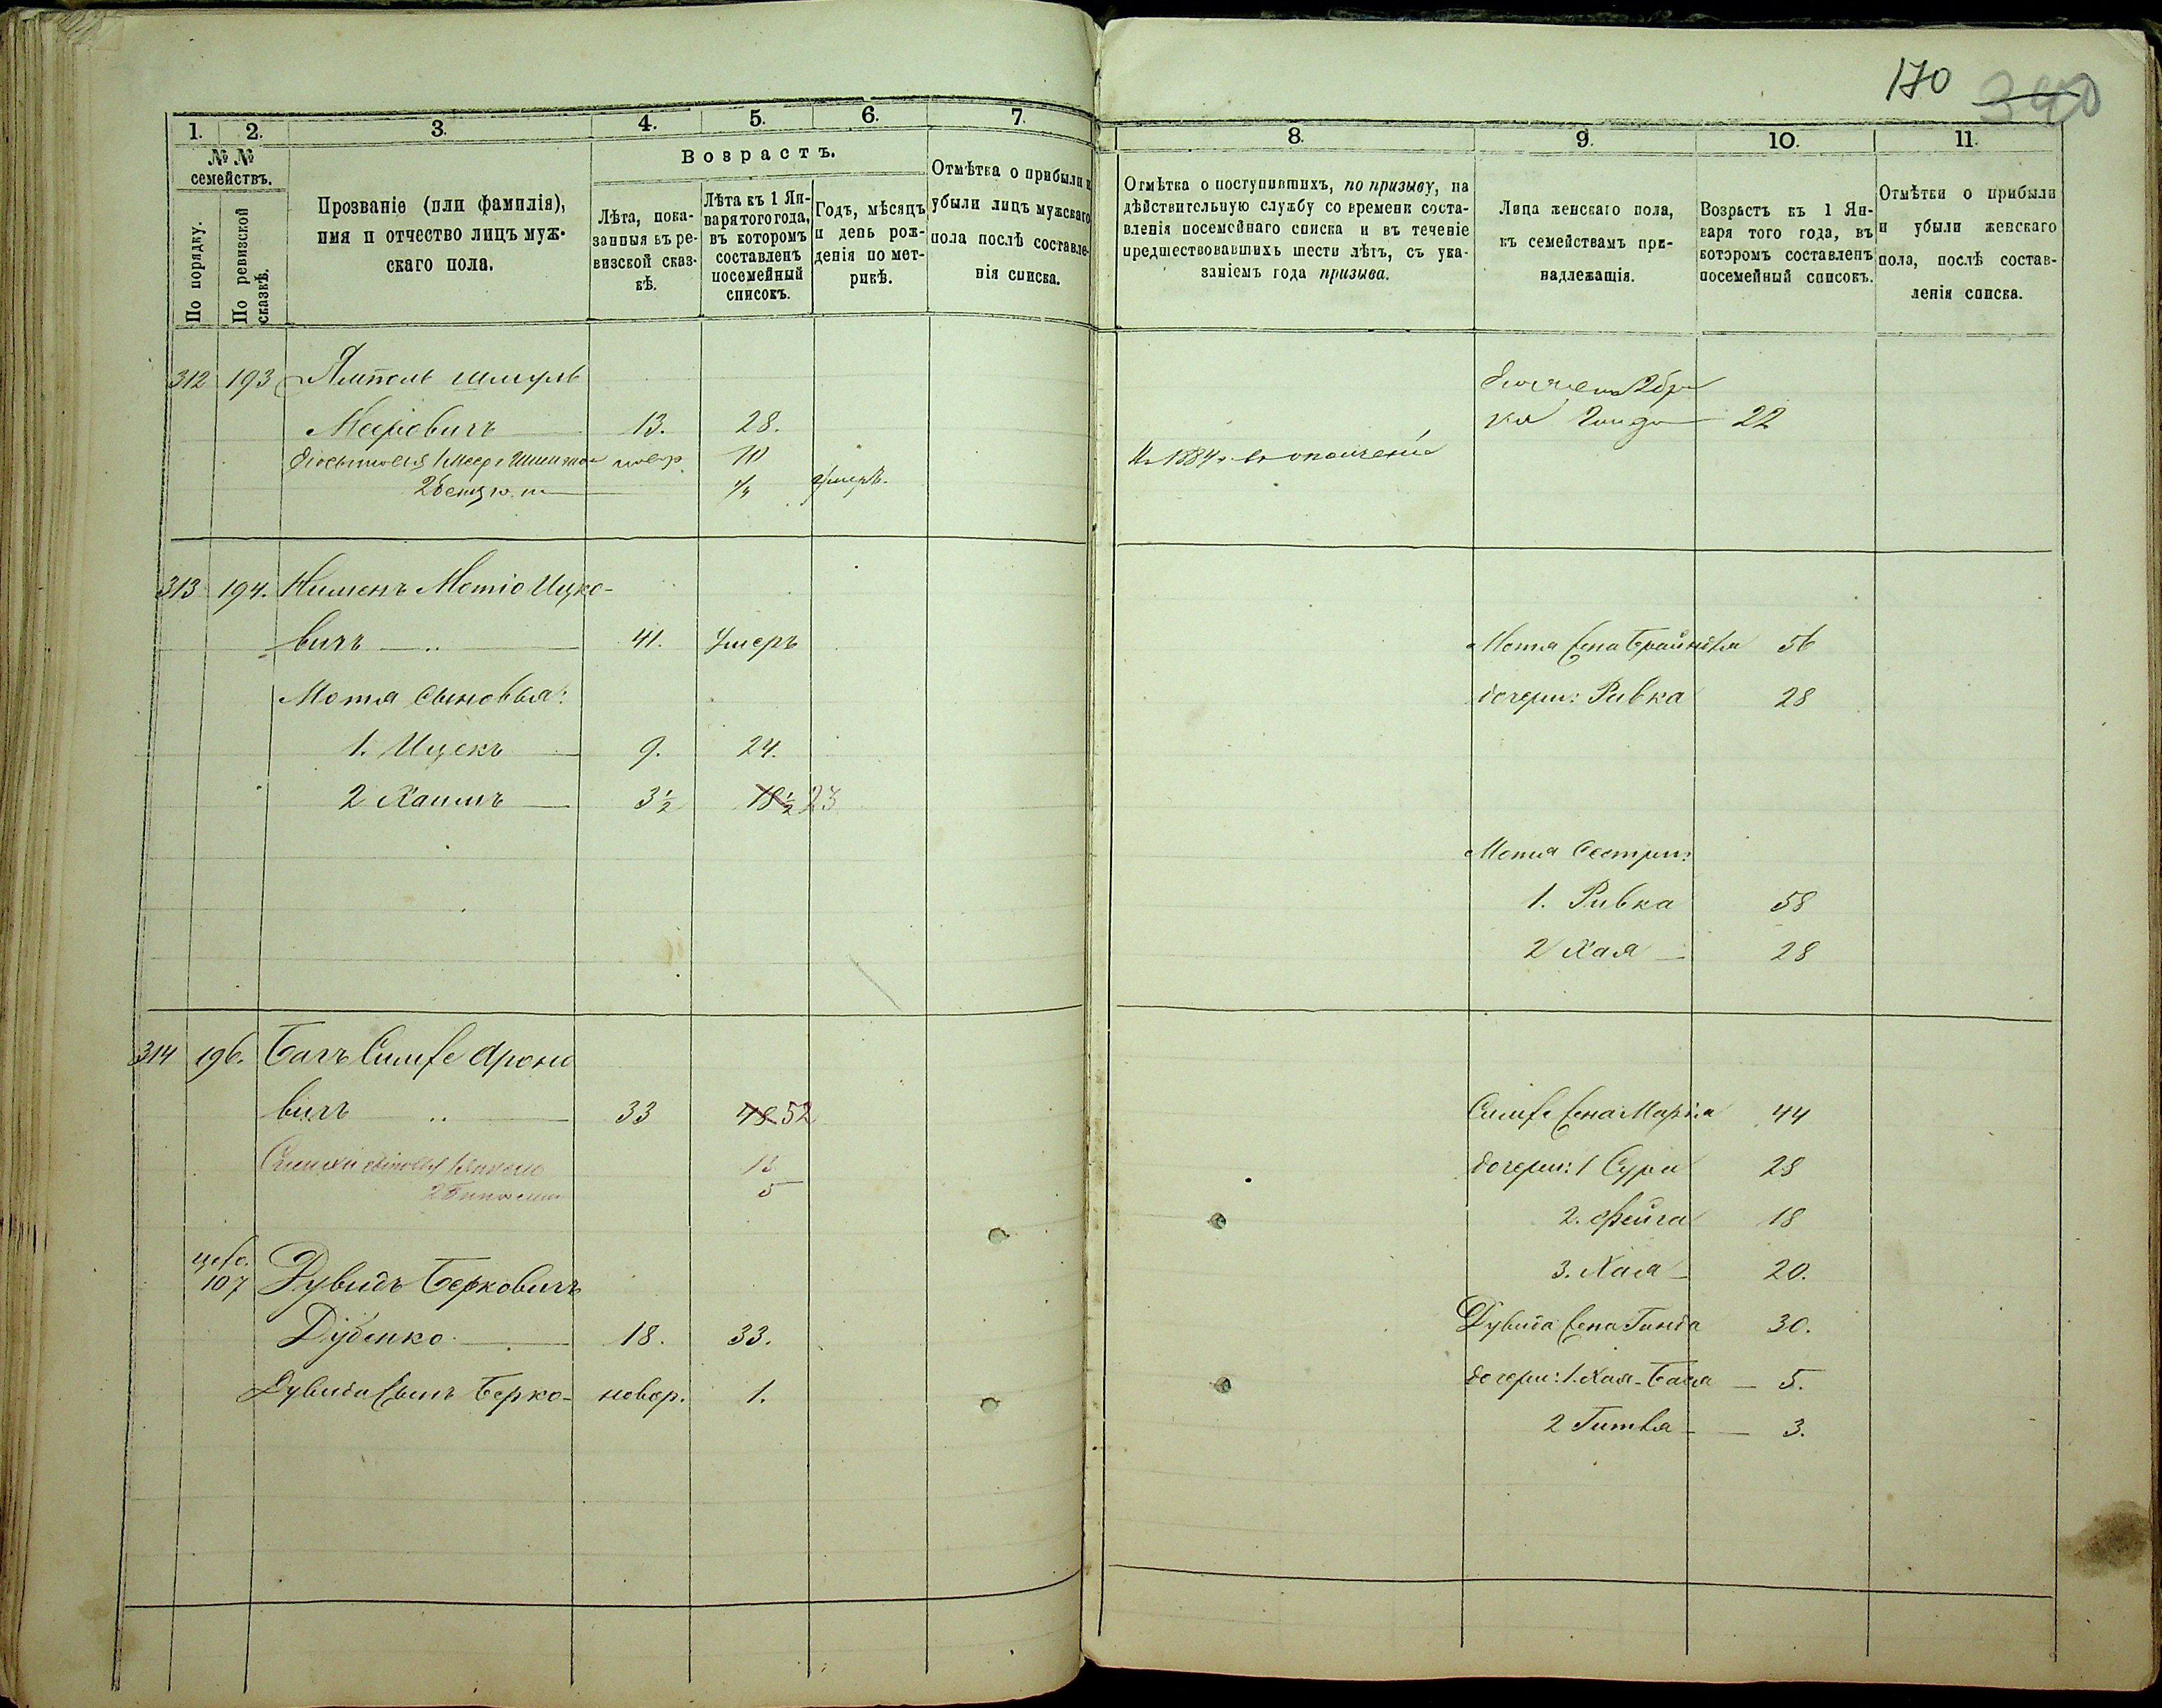 170
340
1. 2. 3. 4. 5. 6. 7.
№ №
семействъ.
По порядку.
По ревизской сказкѣ.
Прозваніе (или фамилія),
имя и отчество лицъ муж-
скаго пола.
Возрастъ.
Лѣта, пока-
занныя въ ре-
визской сказ-
кѣ.
Лѣта къ 1 Ян-
варя того года,
въ которомъ
составленъ
посемейный
списокъ.
Годъ, мѣсяцъ
и день рож-
денія по мет-
рикѣ.
Отмѣтка о прибыли и
убыли лицъ мужскаго
пола послѣ составле-
нія списка.
312 193 Ямполь Шмуль
Мееровичъ 13. 28.
10
Умеръ.
313 194. Мотіо Ицко-
вичъ 41. Умеръ
Мотя сыновья:
1. Ицекъ 9. 24.
2 Хаимъ 3½ 18½ 23
314 196. Ароно
вичъ 33 48 52
15
5
107 Дувидъ Берковичъ
Дубенко 18. 33.
Дувида сынъ Берко- новор. 1.
8. 9. 10. 11.
Отмѣтка о поступившихъ, по призыву, на
дѣйствительную службу со времени соста-
вленія посемейнаго списка и въ теченіе
предшествовавшихъ шести лѣтъ, съ ука-
заніемъ года призыва.
Лица женскаго пола,
къ семействамъ при-
надлежащія.
Возрастъ къ 1 Ян-
варя того года, въ
которомъ составленъ
посемейный списокъ.
Отмѣтки о прибыли
и убыли женскаго
пола, послѣ состав-
ленія списка.
22
1884 въ ополченіе
Мотя жена 56
дочери: Ривка 28
Мотя сестры:
1. Ривка 58
2 Хая 28
жена 44
дочери: 1 Сура 28
2. Фейга 18
3. Хая 20.
Дувида жена Гинда 30.
дочери: 1. Хая-Бася 5.
2 Гитля 3.